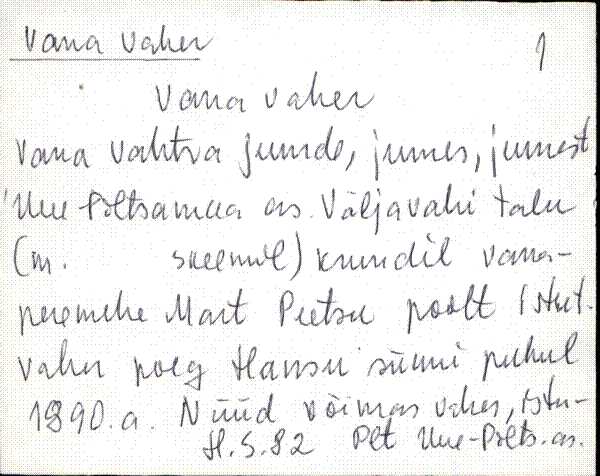 Vana vaher
1
Vana vaher
Vana vahtra juurde, juures, juurest
Uue-Põltsamaa as. Väljavahi talu
(m. skeemil) krundil vana-
peremehe Mart Peetsu poolt istut.
vaher poeg Hansu sünni puhul
1890.a. Nüüd võimas vaher, istu-
H.S.82 Plt Uue-Põlts.as.